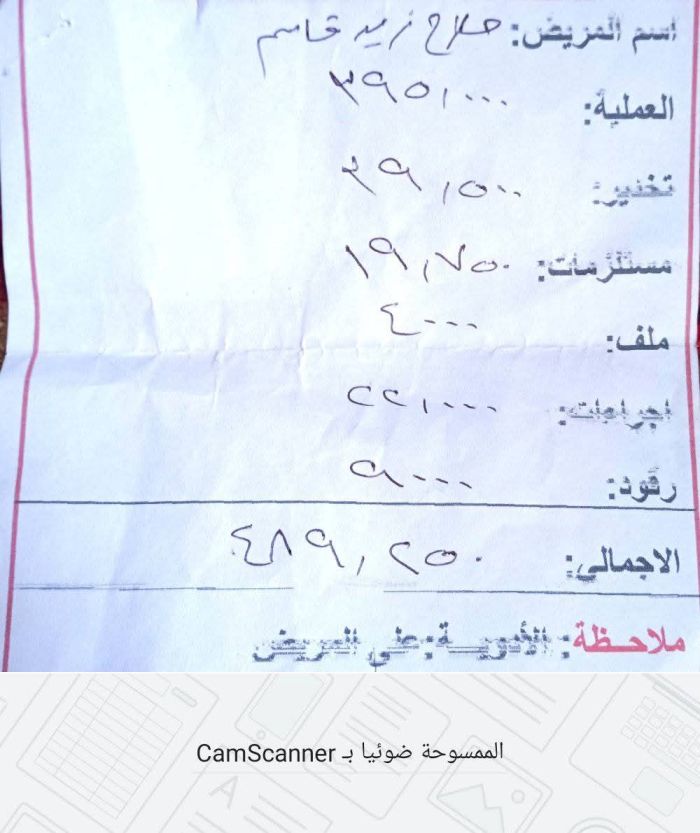 اسم المريض: صلاح زيد قاسم
العملية: ٣٩٥,٠٠٠
تخدير: ٣٩,٥٠٠
مستلزمات: ١٩,٧٥٠
ملف: ٤٠٠٠
اجراءات: ٢٢,٠٠٠
رقود: ٩٠٠٠
الاجمالي: ٤٨٩,٢٥٠
ملاحظة: الأدوية على المريض
الممسوحة ضوئيا بـ CamScanner